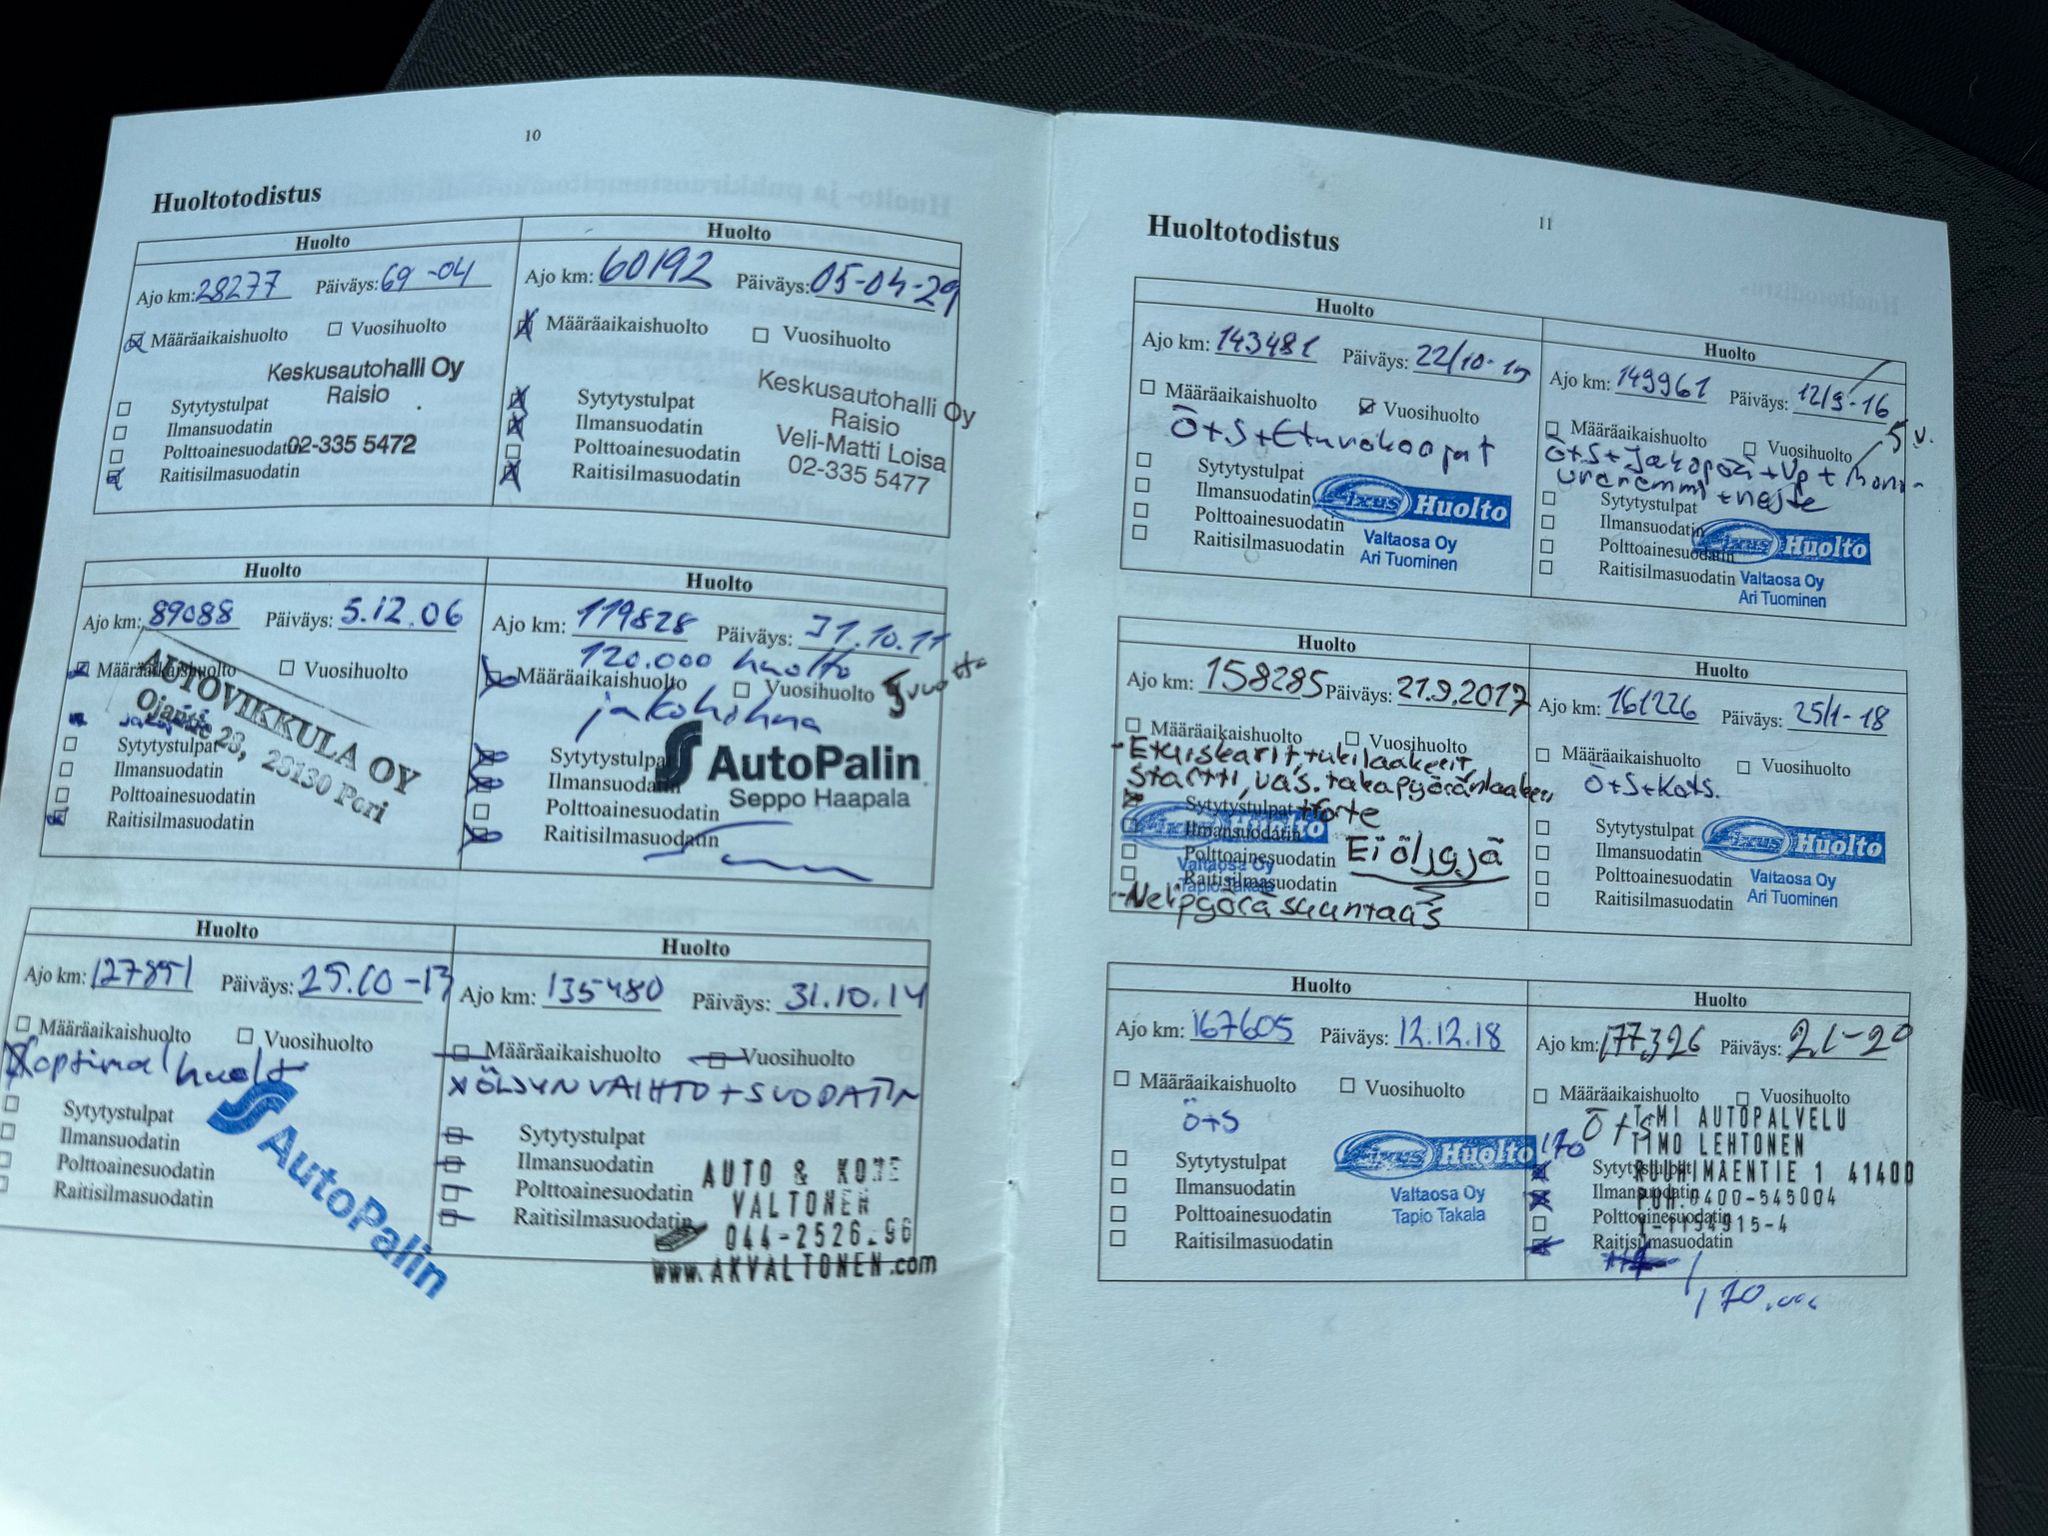 10
Huoltotodistus
Huolto
Ajo km: 28277 Päiväys: 69-04
Määräaikaishuolto Vuosihuolto
Keskusautohalli Oy
Raisio
Sytytystulpat
Ilmansuodatin
Polttoainesuodatin
02-335 5472
Raitisilmasuodatin
Huolto
Ajo km: 60192 Päiväys: 05-04-29
Määräaikaishuolto Vuosihuolto
Keskusautohalli Oy
Raisio
Veli-Matti Loisa
02-335 5477
Sytytystulpat
Ilmansuodatin
Polttoainesuodatin
Raitisilmasuodatin
Huolto
Ajo km: 89088 Päiväys: 5.12.06
Määräaikaishuolto Vuosihuolto
AUTOVIKKULA OY
Ojantie 23, 28130 Pori
Sytytystulpat
Ilmansuodatin
Polttoainesuodatin
Raitisilmasuodatin
Huolto
Ajo km: 119828 Päiväys: 31.10.11
120.000 huolto
Määräaikaishuolto Vuosihuolto 5 vuotta
jakohihna
Sytytystulpat
Ilmansuodatin
Polttoainesuodatin
Raitisilmasuodatin
AutoPalin
Seppo Haapala
Huolto
Ajo km: 127891 Päiväys: 25.10-13
Määräaikaishuolto Vuosihuolto
optimal huolto
Sytytystulpat
Ilmansuodatin
Polttoainesuodatin
Raitisilmasuodatin
AutoPalin
Huolto
Ajo km: 135480 Päiväys: 31.10.14
Määräaikaishuolto Vuosihuolto
x ÖLJYN VAIHTO + SUODATIN
Sytytystulpat
Ilmansuodatin
Polttoainesuodatin
Raitisilmasuodatin
AUTO & KONE
VALTONEN
044-2526.96
www.AKVALTONEN.com
11
Huoltotodistus
Huolto
Ajo km: 143481 Päiväys: 22/10-15
Määräaikaishuolto Vuosihuolto
Ö+S+Etuvokoopat
Sytytystulpat
Ilmansuodatin
Polttoainesuodatin
Raitisilmasuodatin
Fixus Huolto
Valtaosa Oy
Ari Tuominen
Huolto
Ajo km: 149961 Päiväys: 12/9-16
Määräaikaishuolto Vuosihuolto 5 v.
Ö+S+Jakopää+Vp+moni-
urahemmi+neste
Sytytystulpat
Ilmansuodatin
Polttoainesuodatin
Raitisilmasuodatin
Fixus Huolto
Valtaosa Oy
Ari Tuominen
Huolto
Ajo km: 158285 Päiväys: 21.9.2017
Määräaikaishuolto Vuosihuolto
- Etuiskarit, tukilaakerit,
startti, vas. takapyöränlaakeri
Sytytystulpat
Ilmansuodatin
Polttoainesuodatin
Raitisilmasuodatin
Fixus Huolto
Valtaosa Oy
Tapio Takala
Ei öljyjä
- Nelipyöräsuuntaus
Huolto
Ajo km: 161226 Päiväys: 25/1-18
Määräaikaishuolto Vuosihuolto
Ö+S+Kats.
Sytytystulpat
Ilmansuodatin
Polttoainesuodatin
Raitisilmasuodatin
Fixus Huolto
Valtaosa Oy
Ari Tuominen
Huolto
Ajo km: 167605 Päiväys: 12.12.18
Määräaikaishuolto Vuosihuolto
Ö+S
Sytytystulpat
Ilmansuodatin
Polttoainesuodatin
Raitisilmasuodatin
Fixus Huolto
Valtaosa Oy
Tapio Takala
Huolto
Ajo km: 177326 Päiväys: 2.1-20
Määräaikaishuolto Vuosihuolto
Ö+S
170
T:MI AUTOPALVELU
TIMO LEHTONEN
RUUHIMÄENTIE 1 41400
PUH.0400-545004
Y-1194915-4
Sytytystulpat
Ilmansuodatin
Polttoainesuodatin
Raitisilmasuodatin
170.000